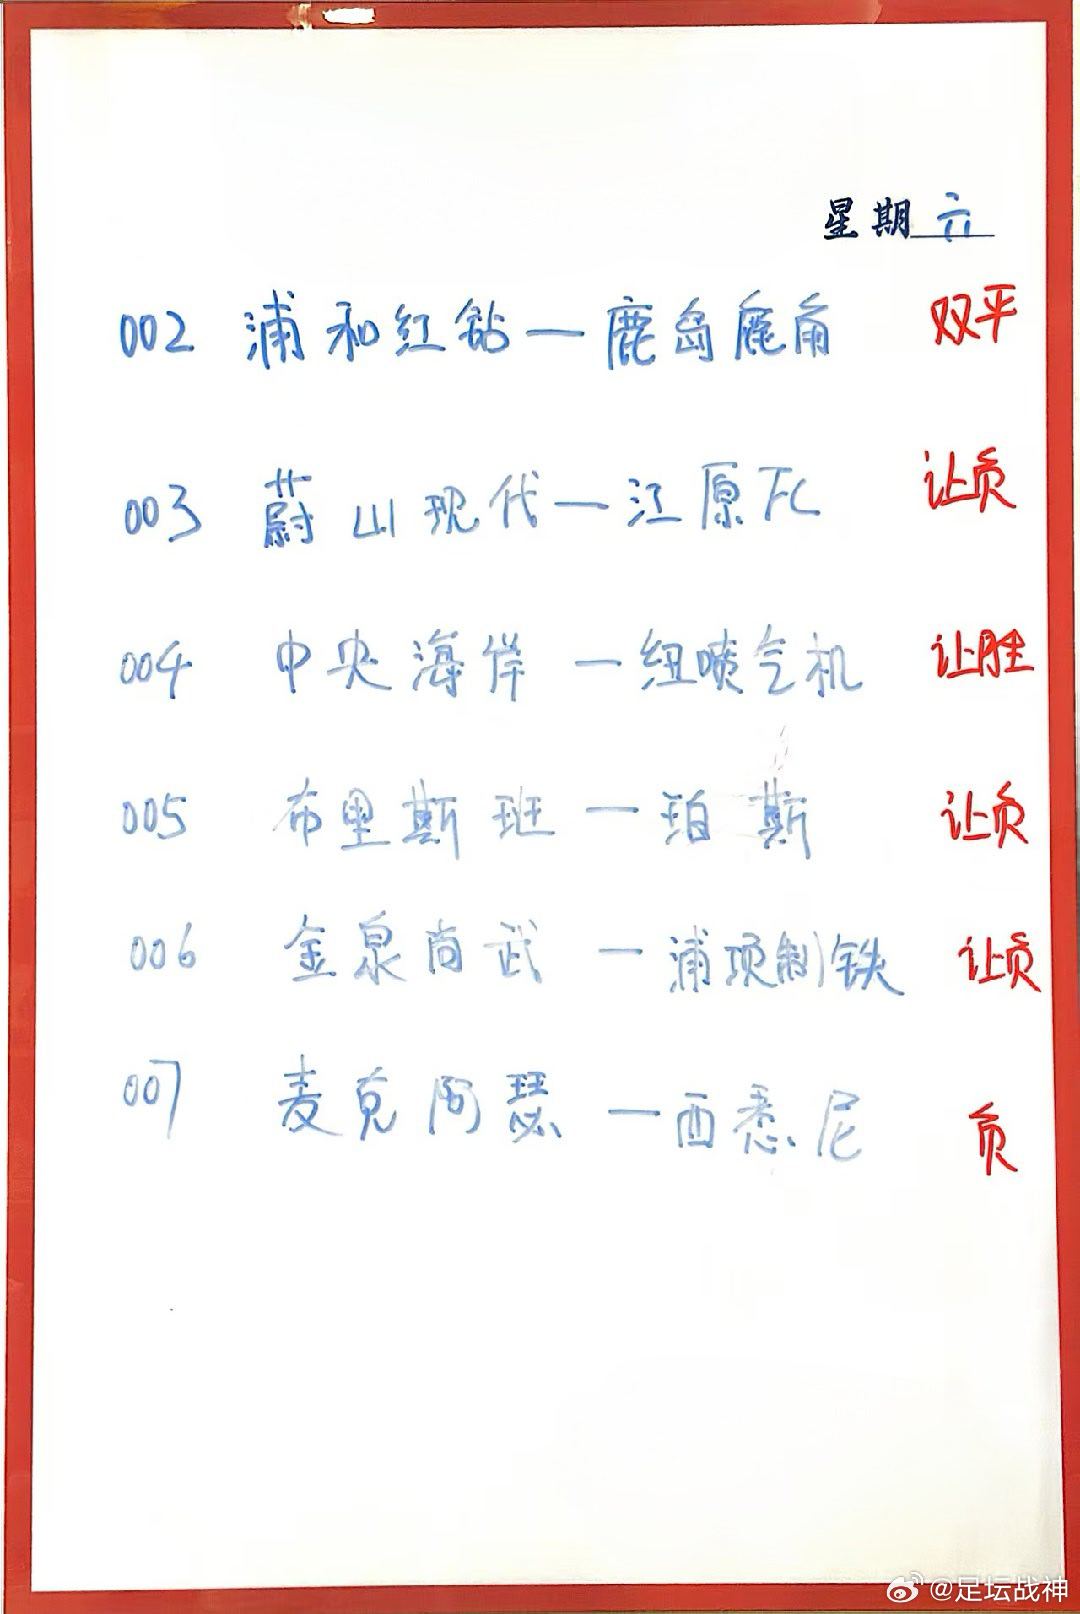 星期六
002 浦和红钻一鹿岛鹿角 双平
003 蔚山现代一江原FC 让负
004 中央海岸一纽喷气机 让胜
005 布里斯班一珀斯 让负
006 金泉尚武一浦项制铁 让负
007 麦克阿瑟一西悉尼 负
@足坛战神